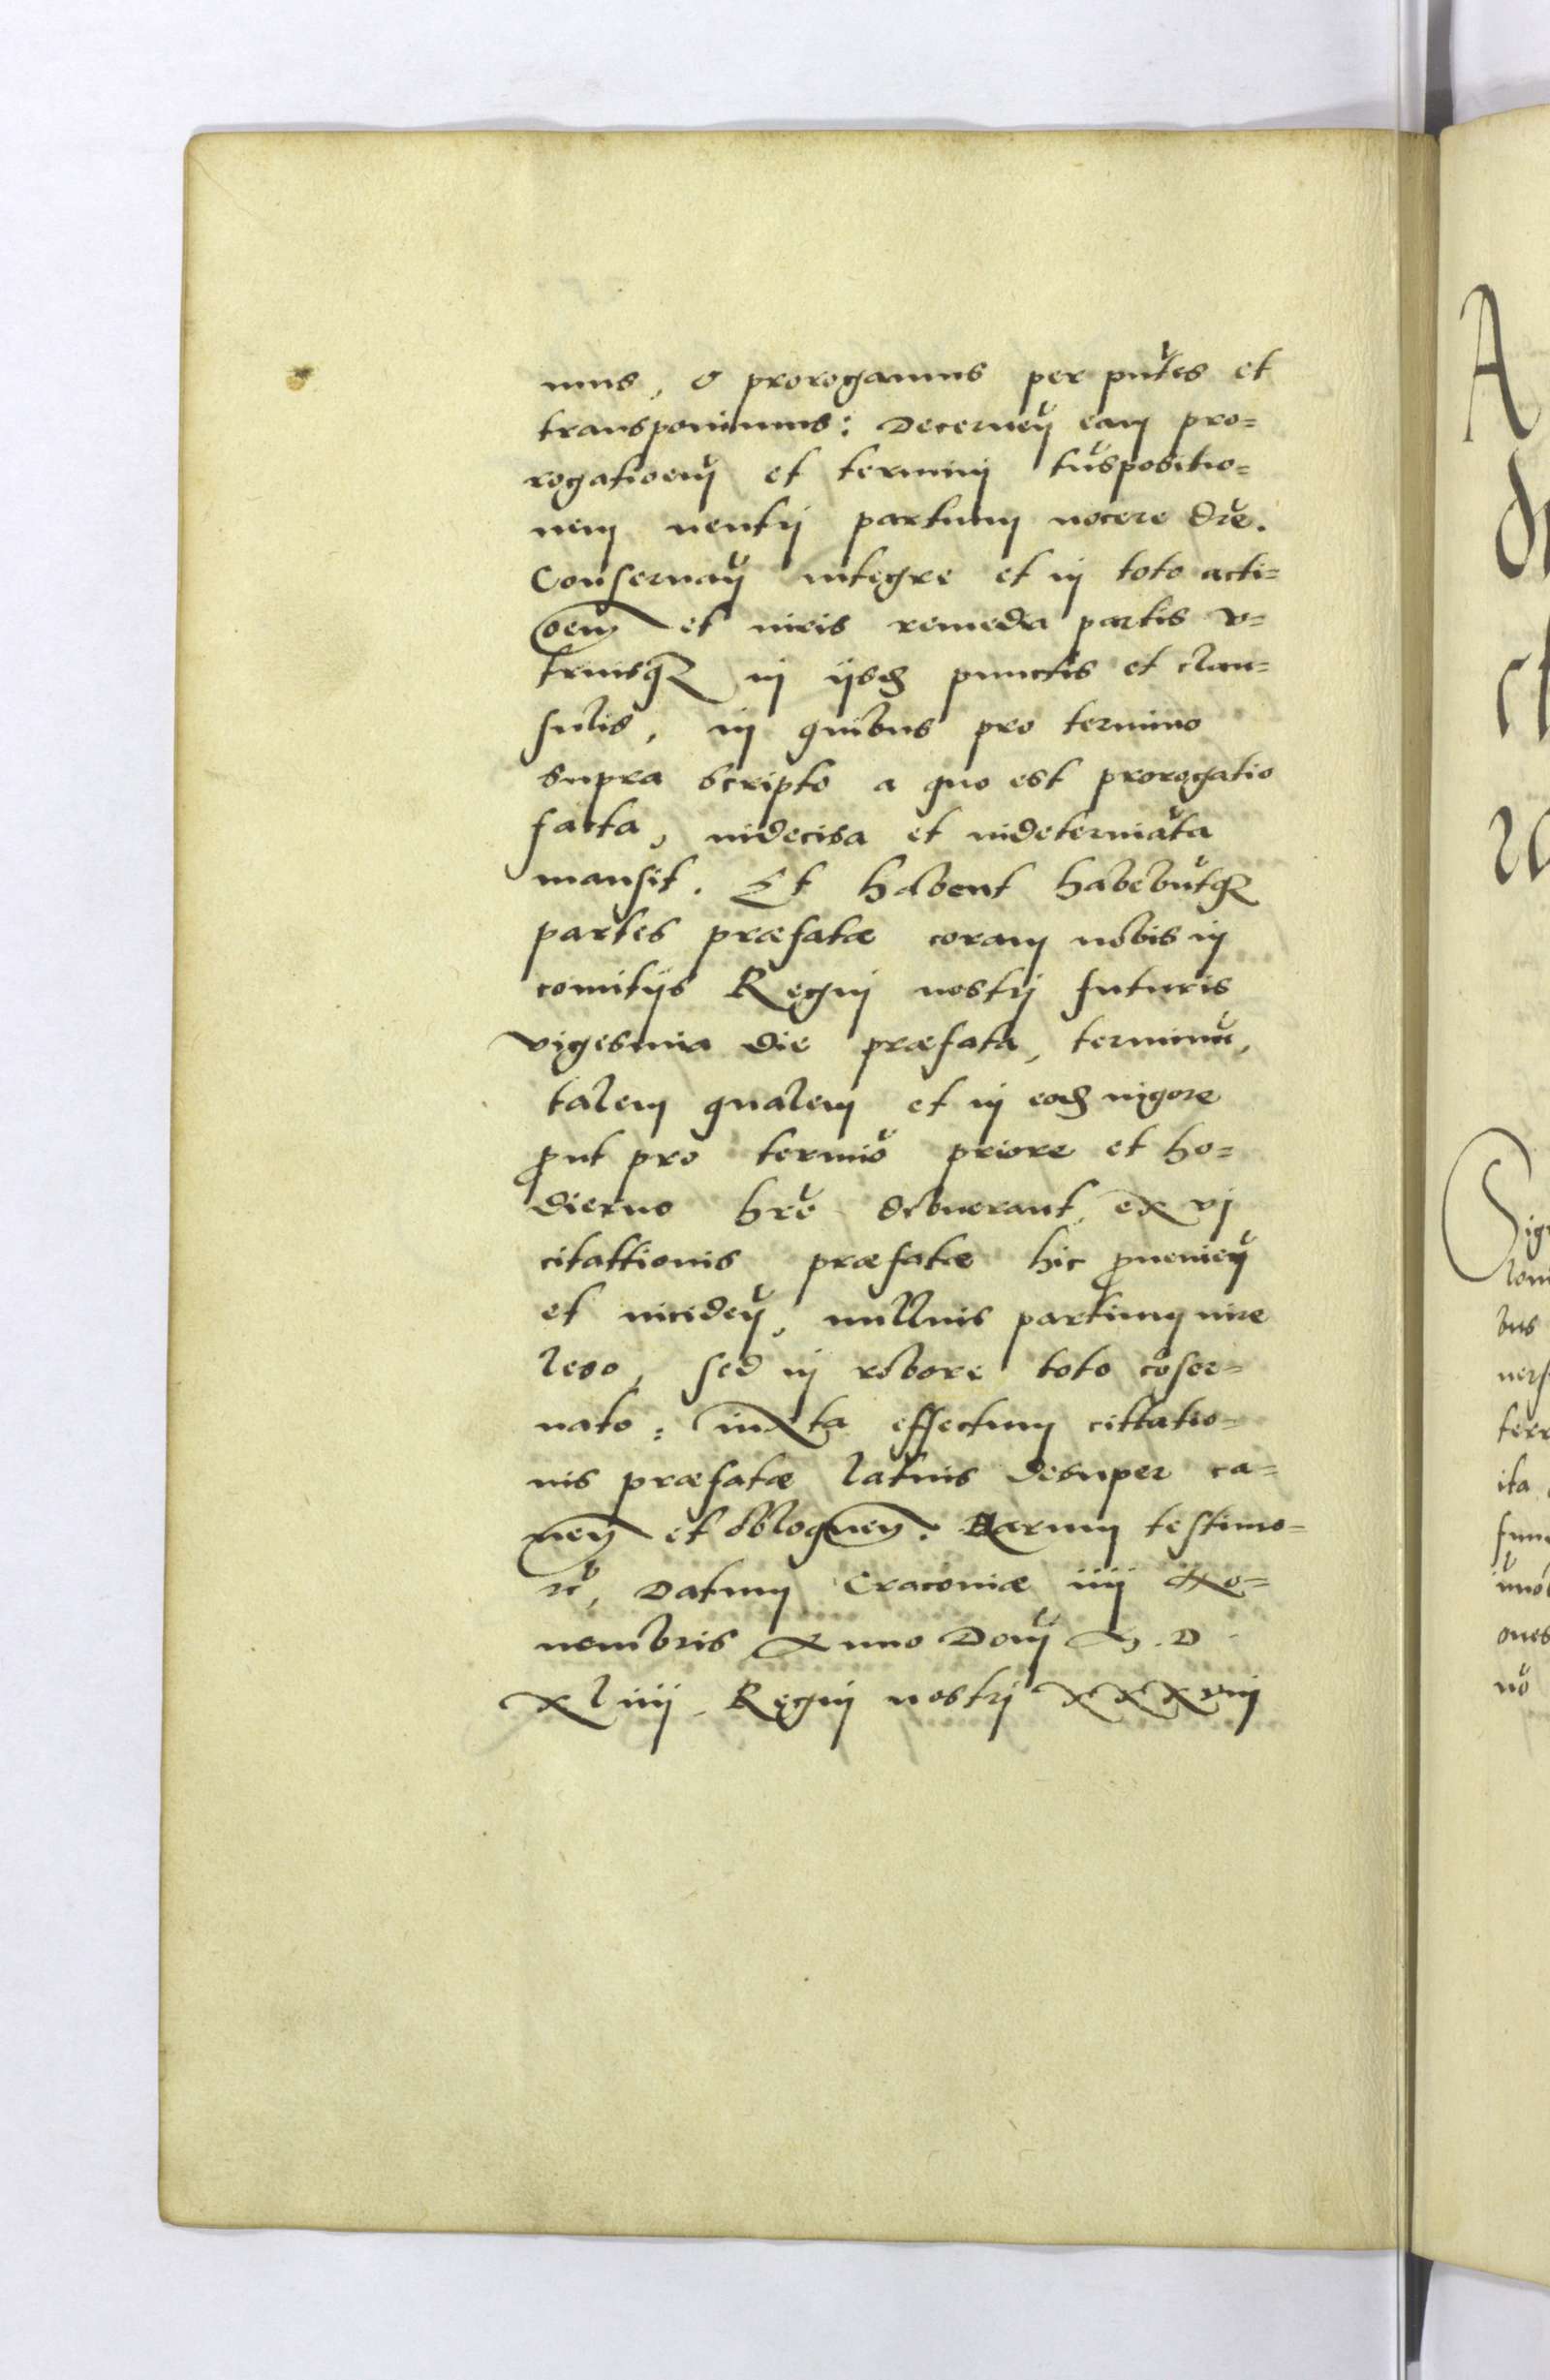 mus, & prorogamus per pñtes et
transponimus: Decerneñ eam pro=
rogatioem̃ et termini tñspositio=
nem neutri partium nocere dr̃e.
Conseruañ integre et in toto acti=
oem et iuris remedia partis v=
triusqꝫ in ijsdẽ punctis et clau=
sulis, in quibus pro termino
supra scripto a quo est prorogatio
facta, indecisa et indetermiãta
mansit. Et habent habebũtqꝫ
partes præfatæ coram nobis in
comitijs Regni nostri futuris
vigesima die præfata, terminũ,
talem qualem et in eodẽ uigore
ꝓut pro termiõ priore et ho=
dierno hr̃e debuerant, ex vi
citattionis præfatæ hic ꝓuenieñ
et incideñ, nullius partium iure
leso, sed in robore toto cõser=
uato: iuxta effectum cittatio=
nis præfatæ latius desuper ca=
neñ et obloqueñ. Harum testimo=
ĩo, Datum Cracoviæ iiij No=
uembris Anno Domĩ M.D.
xliiij. Regni nostri xxxviij
A
Sig
bus
uers
terr
ita
nõ